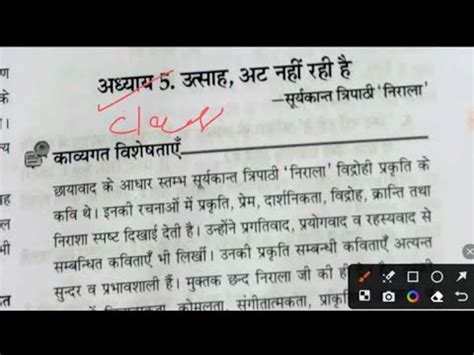 अध्याय 5. उत्साह, अट नहीं रही है
—सूर्यकान्त त्रिपाठी 'निराला'
class
काव्यगत विशेषताएँ
छायावाद के आधार स्तम्भ सूर्यकान्त त्रिपाठी 'निराला' विद्रोही प्रकृति के
कवि थे। इनकी रचनाओं में प्रकृति, प्रेम, दार्शनिकता, विद्रोह, क्रान्ति तथा
निराशा स्पष्ट दिखाई देती है। उन्होंने प्रगतिवाद, प्रयोगवाद व रहस्यवाद से
सम्बन्धित कविताएँ भी लिखीं। उनकी प्रकृति सम्बन्धी कविताएँ अत्यन्त
सुन्दर व प्रभावशाली हैं। मुक्तक छन्द निराला जी की ही
कोमलता, संगीतात्मकता,